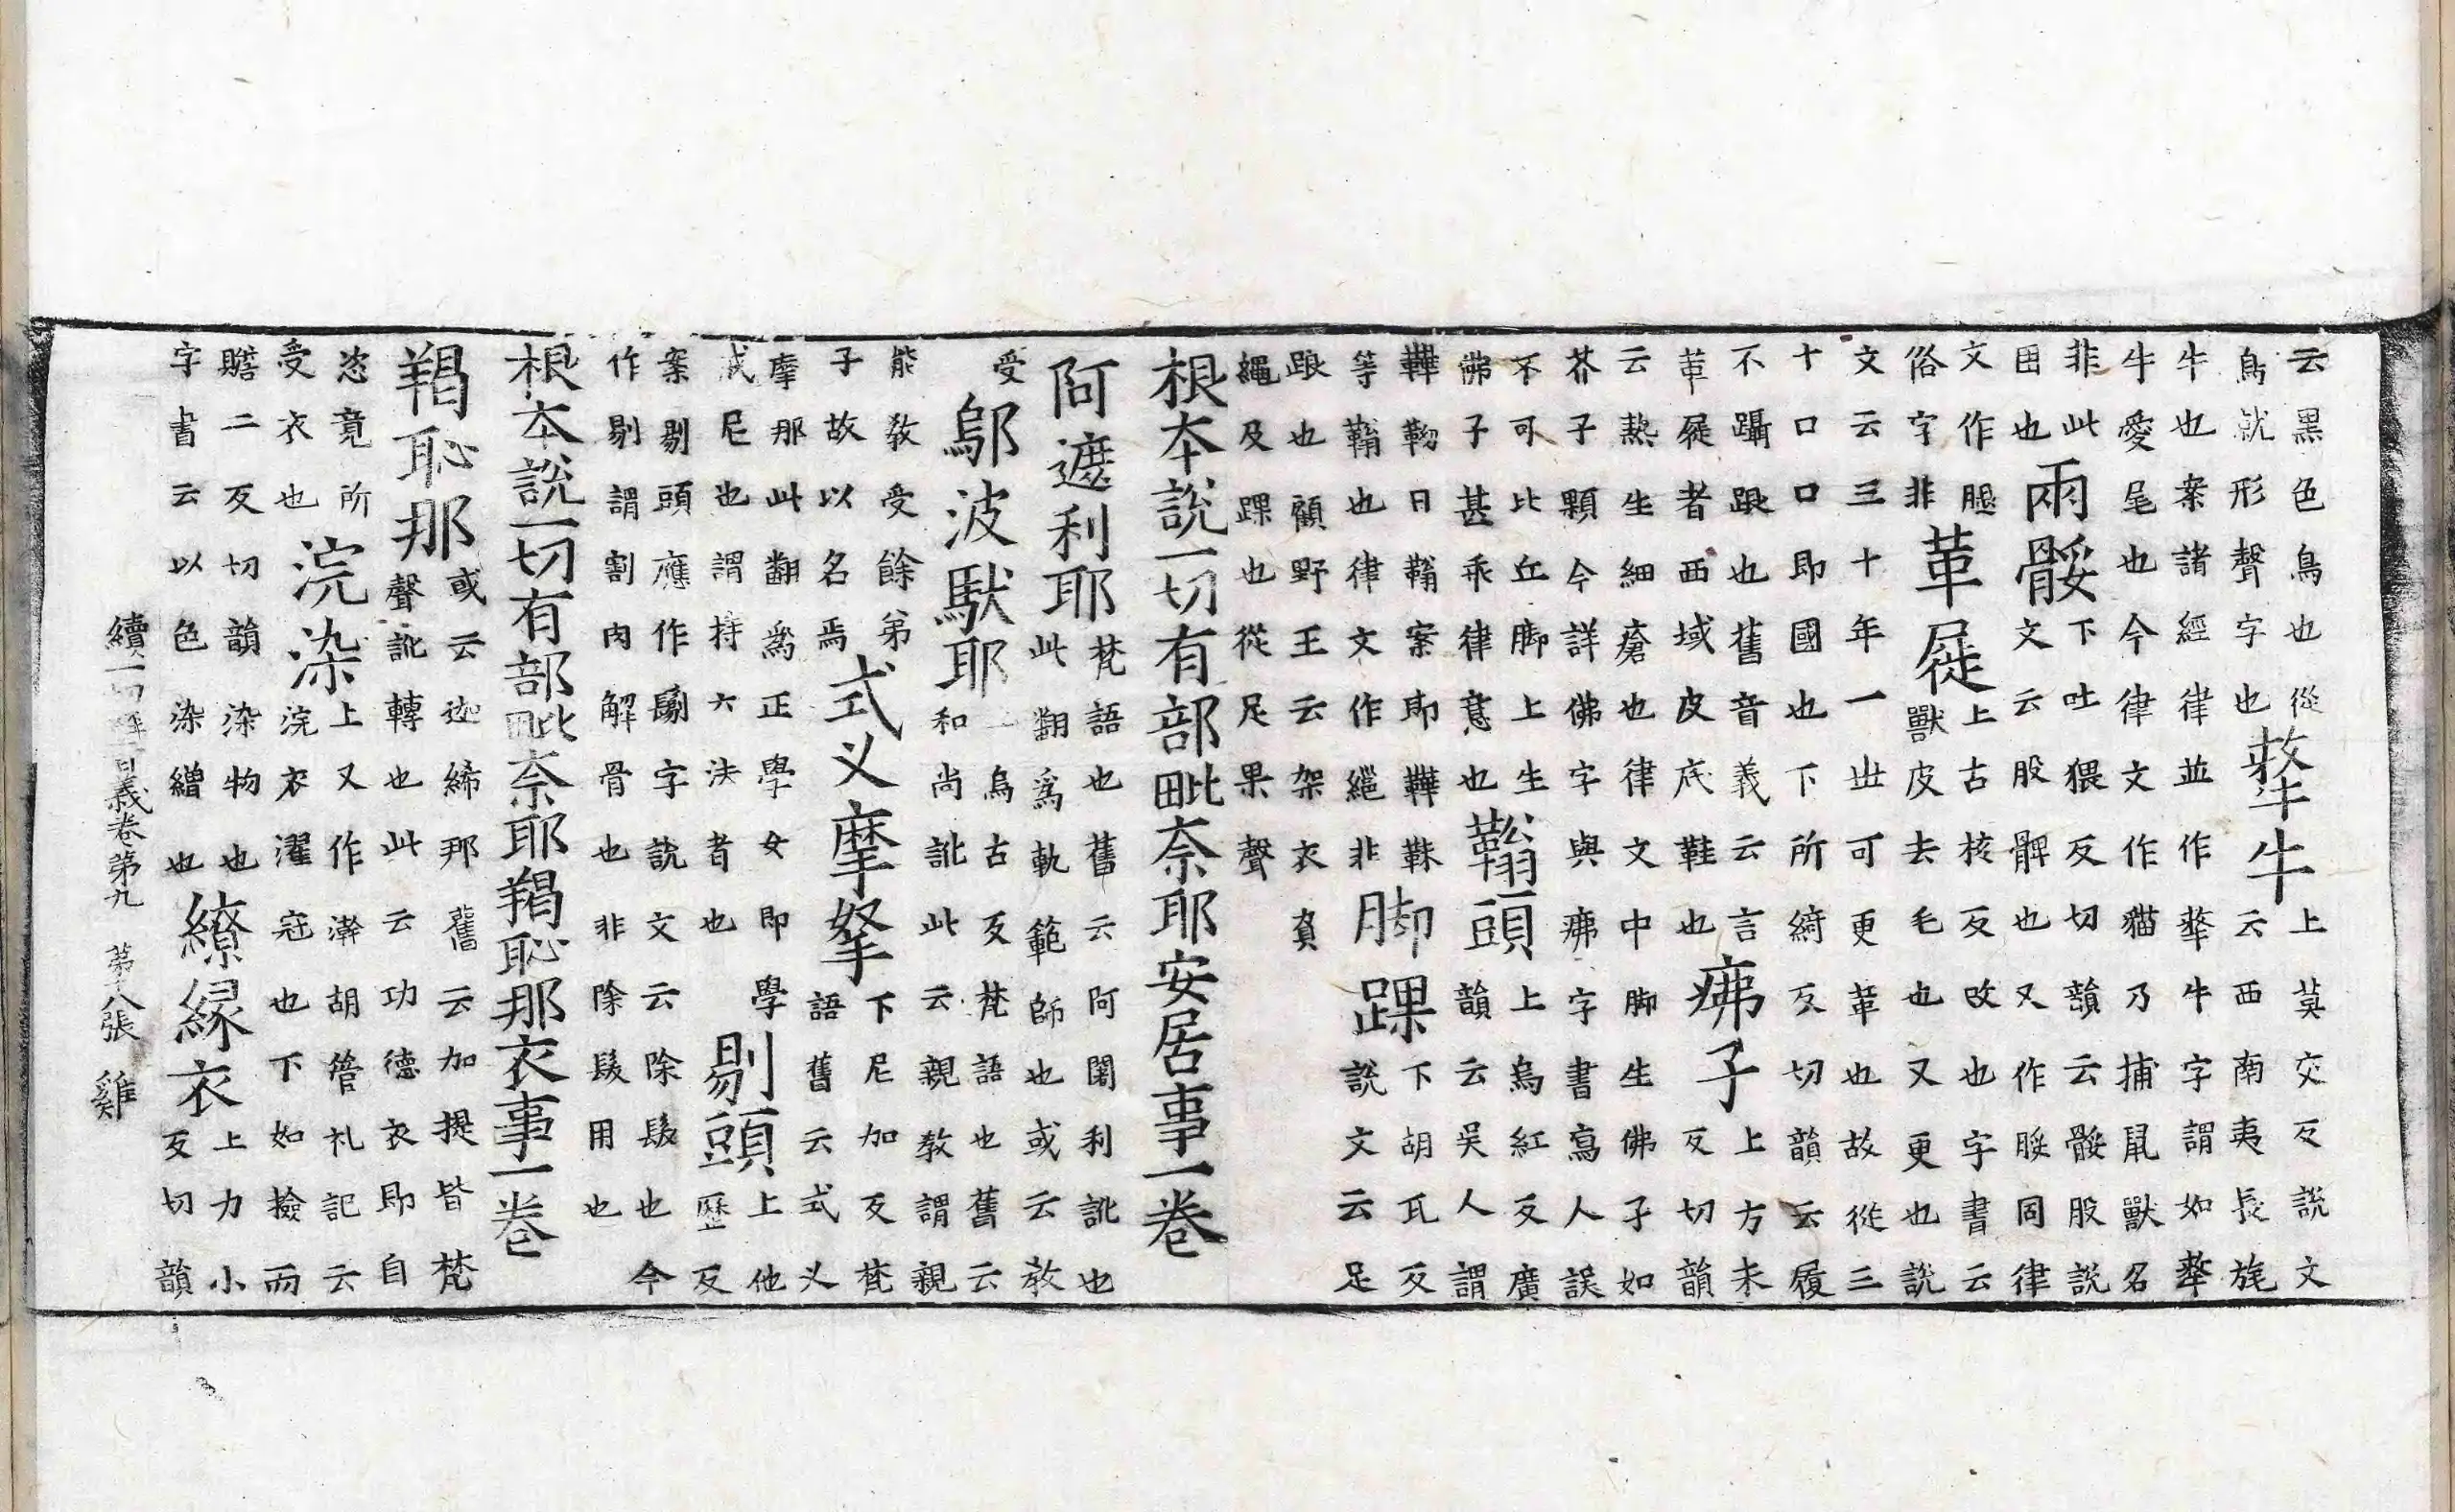 云黑色鳥也從
鳥就形聲字也
犛牛
上莫交反說文
云西南夷長旄
牛也案諸經律並作犛牛字謂如犛
牛愛尾也今律文作猫乃捕鼠獸名
非此
囬也
兩骽
下吐猥反切韻云骽股說
文云股髀也又作脮同律
文作腿
俗字非
革屣
上古核反改也字書云
獸皮去毛也又更也說
文云三十年一丗可更革也故從三
十口口即國也下所綺反切韻云履
不躡跟也舊音義云言
革屣者西域皮底鞋也
疿子
上方未
反切韻
云熱生細瘡也律文中脚生佛子如
芥子顆今詳佛字與疿字書寫人誤
不可比丘脚上生
佛子甚乖律意也
䩺頭
上烏紅反廣
韻云吳人謂
鞾靿曰䩺案即鞾靺
等䩺也律文作非
脚踝
下胡瓦反
說文云足
踉也顧野王云架衣
繩及踝也從足果聲
根本說一切有部毗奈耶安居事一卷
阿遮利耶
梵語也舊云阿闍利訛也
此翻爲軌範師也或云教
受
鄔波馱耶
烏古反梵語也舊云
和尚訛此云親教謂親
能教受餘弟
子故以名焉
式义摩拏
下尼加反梵
語舊云式义
摩那此翻爲正學女即學
式尼也謂持六法者也
剔頭
上他
歷反
案剔頭應作鬄字說文云除髮也今
作剔謂割肉解骨也非除髮用也
根本說一切有部毗奈耶羯恥那衣事一卷
羯恥那
或云迦絺那舊云加提皆梵
聲訛轉也此云功德衣即自
恣竟所
受衣也
浣染
上又作澣胡管礼記云
浣衣濯冠也下如撿而
贍二反切韻染物也
字書云以色染繒也
繚緣衣
上力小
反切韻
續一切經音義卷第九 第十八張 雞